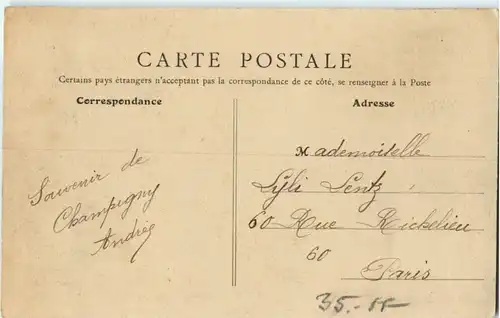 CARTE POSTALE
Certains pays étrangers n'acceptant pas la correspondance de ce côté, se renseigner à la Poste
Correspondance
Adresse
Souvenir de
Champigny
Andrée
Mademoiselle
Lyli Lentz
60 Rue Richelieu
60
Paris
35.-